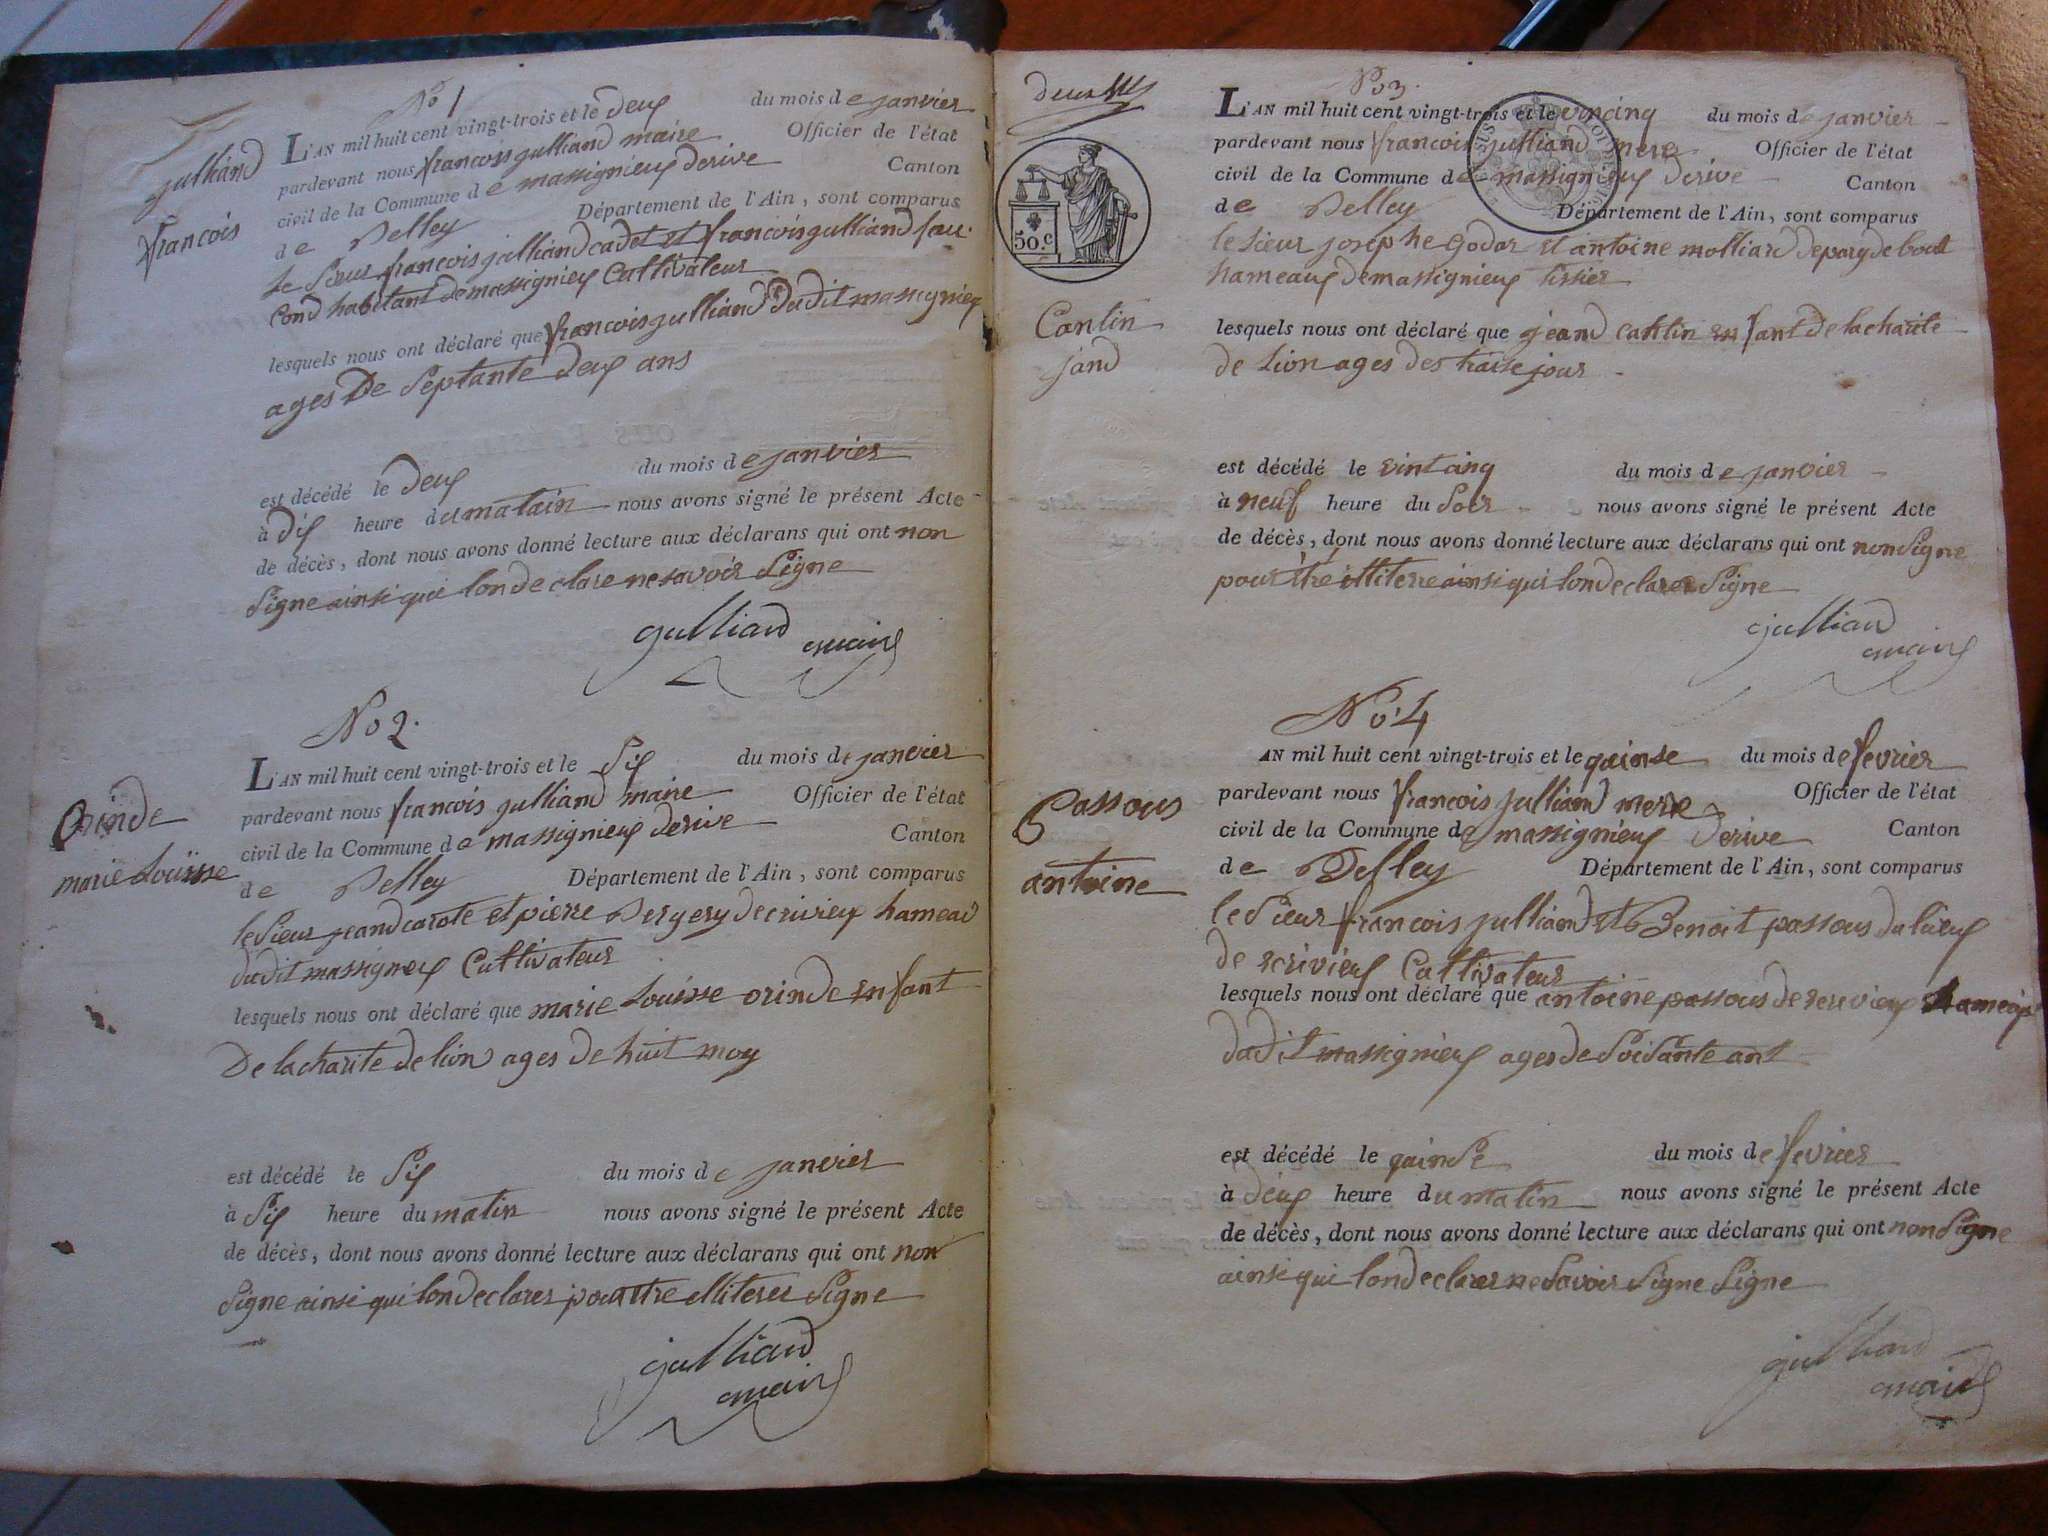 No 1
julliand
françois
L'AN mil huit cent vingt-trois et le deux du mois de janvier
pardevant nous francois julliand maire Officier de l'état
civil de la Commune de massignieux derive Canton
de Belley Département de l'Ain, sont comparus
le Sieur francois julliand cadet et francois julliand
cond habitant de massignieux Cultivateur
lesquels nous ont déclaré que francois julliand dudit massignieux
ages De Septante deux ans
est décédé le deux du mois de janvier
à dix heure du matain nous avons signé le présent Acte
de décès, dont nous avons donné lecture aux déclarans qui ont non
Signe ainsi que lon de clare ne savoir Signe
julliand maire
No 2.
orinde
marie Louisse
L'AN mil huit cent vingt-trois et le Six du mois de janvier
pardevant nous francois julliand maire Officier de l'état
civil de la Commune de massignieux derive Canton
de Belley Département de l'Ain, sont comparus
le Sieur jeand carote et pierre Bergery de crivieux hameau
dudit massignieux Cultivateur
lesquels nous ont déclaré que marie Louisse orinde enfant
De la charite de lion ages de huit moy
est décédé le Six du mois de janvier
à Six heure du matin nous avons signé le présent Acte
de décès, dont nous avons donné lecture aux déclarans qui ont non
Signe ainsi qui lon declarer pour ttre illiterer Signe
julliand
maire
deux
50.c
No 3.
Cantin
jand
L'AN mil huit cent vingt-trois et le vincinq du mois de janvier
pardevant nous francois julliand mere Officier de l'état
civil de la Commune de massignieux derive Canton
de Belley Département de l'Ain, sont comparus
le Sieur josephe Godar et antoine molliard de
hameaux de massignieux tissier
lesquels nous ont déclaré que jeand cantin enfant de la charite
de Lion ages des traise jour
est décédé le vintcinq du mois de janvier
à neuf heure du Soir nous avons signé le présent Acte
de décès, dont nous avons donné lecture aux déclarans qui ont non Signe
pour itre illiterre ainsi qui lon declarer Signe
julliand
maire
No. 4
passous
antoine
AN mil huit cent vingt-trois et le quinse du mois de fevrier
pardevant nous francois julliand mere Officier de l'état
civil de la Commune de massignieux derive Canton
de Belley Département de l'Ain, sont comparus
le Sieur francois julliand et Benoit passous du lieux
de ecrivieux Cultivateur
lesquels nous ont déclaré que antoine passous de ecrivieux hameaux
dudit massignieux ages de Soisante ant
est décédé le quinse du mois de fevrier
à deux heure du matin nous avons signé le présent Acte
de décès, dont nous avons donné lecture aux déclarans qui ont non Signe
ainsi qui lon declarer ne Savoir Signe Signe
julliand
maire